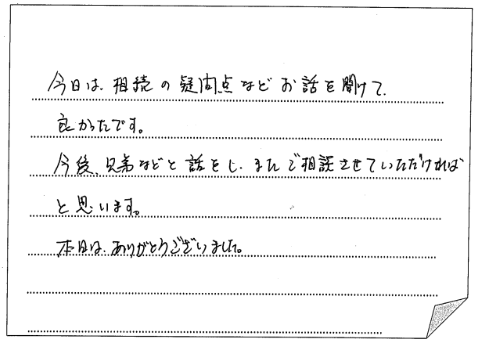 今日は、相続の疑問点などお話を聞けて、
良かったです。
今後、兄弟などと話をし、またご相談させていただければ
と思います。
本日は、ありがとうございました。